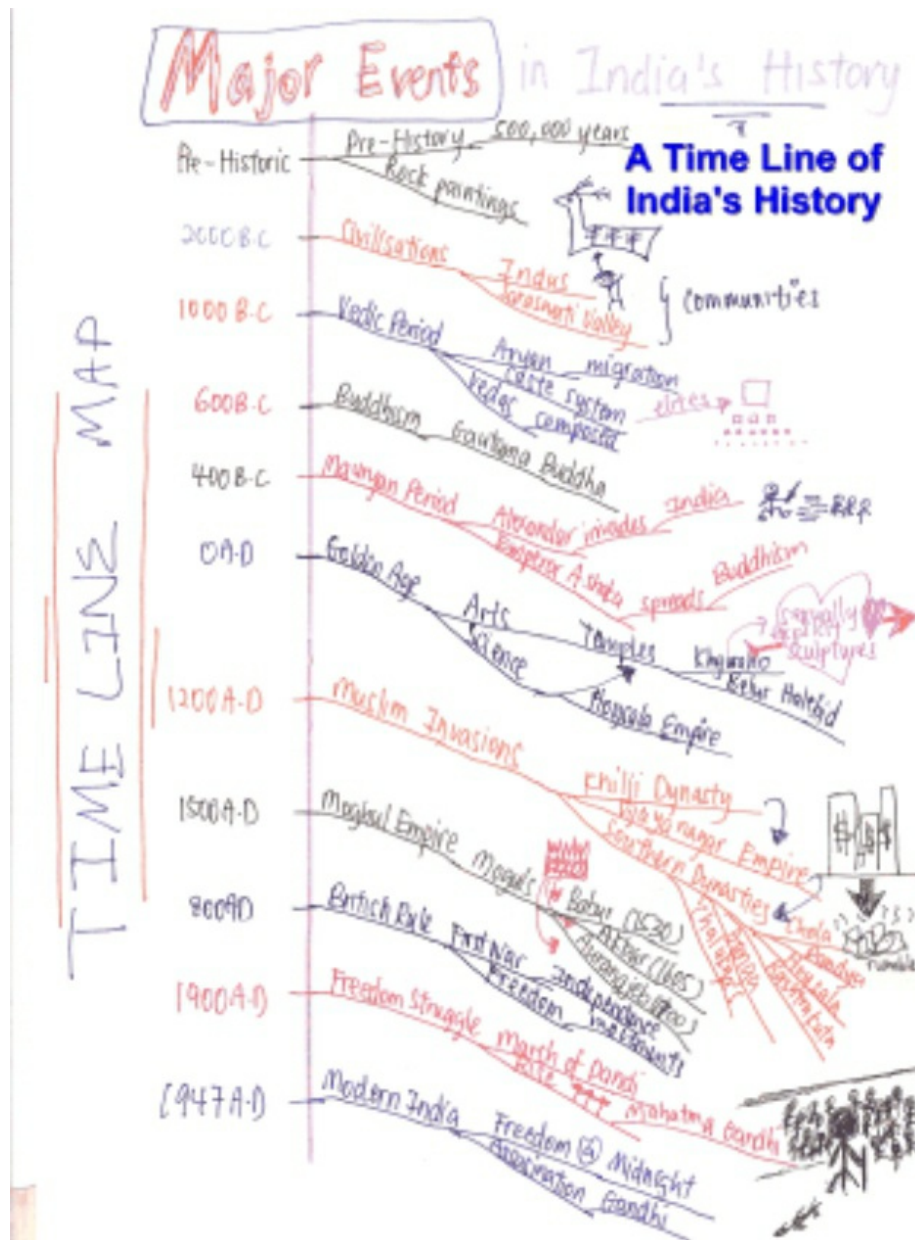 Major Events in India's History
A Time Line of
India's History
TIME LINE MAP
Pre-Historic
Pre-History 500,000 years
Rock paintings
2000 B.C
Civilisations
Indus
Valley
communities
1000 B.C
Vedic Period
Aryan migration
caste system
Vedas composed
elites
600 B.C
Buddhism
Gautama Buddha
400 B.C
Mauryan Period
Alexander invades India
Emperor Ashoka spreads Buddhism
0 A.D
Golden Age
Arts
Science
Temples
Belur Halebid
Empire
sculptures
1200 A.D
Muslim Invasions
Khilji Dynasty
Empire
Southern Dynasties
Chola
1500 A.D
Moghul Empire
Moguls
Babur (1530)
Akbar (1605)
British Rule
First War Independence
Freedom
1900 A.D
Freedom Struggle
Marsh of Dandi
Mahatma Gandhi
1947 A.D
Modern India
Freedom @ Midnight
Gandhi